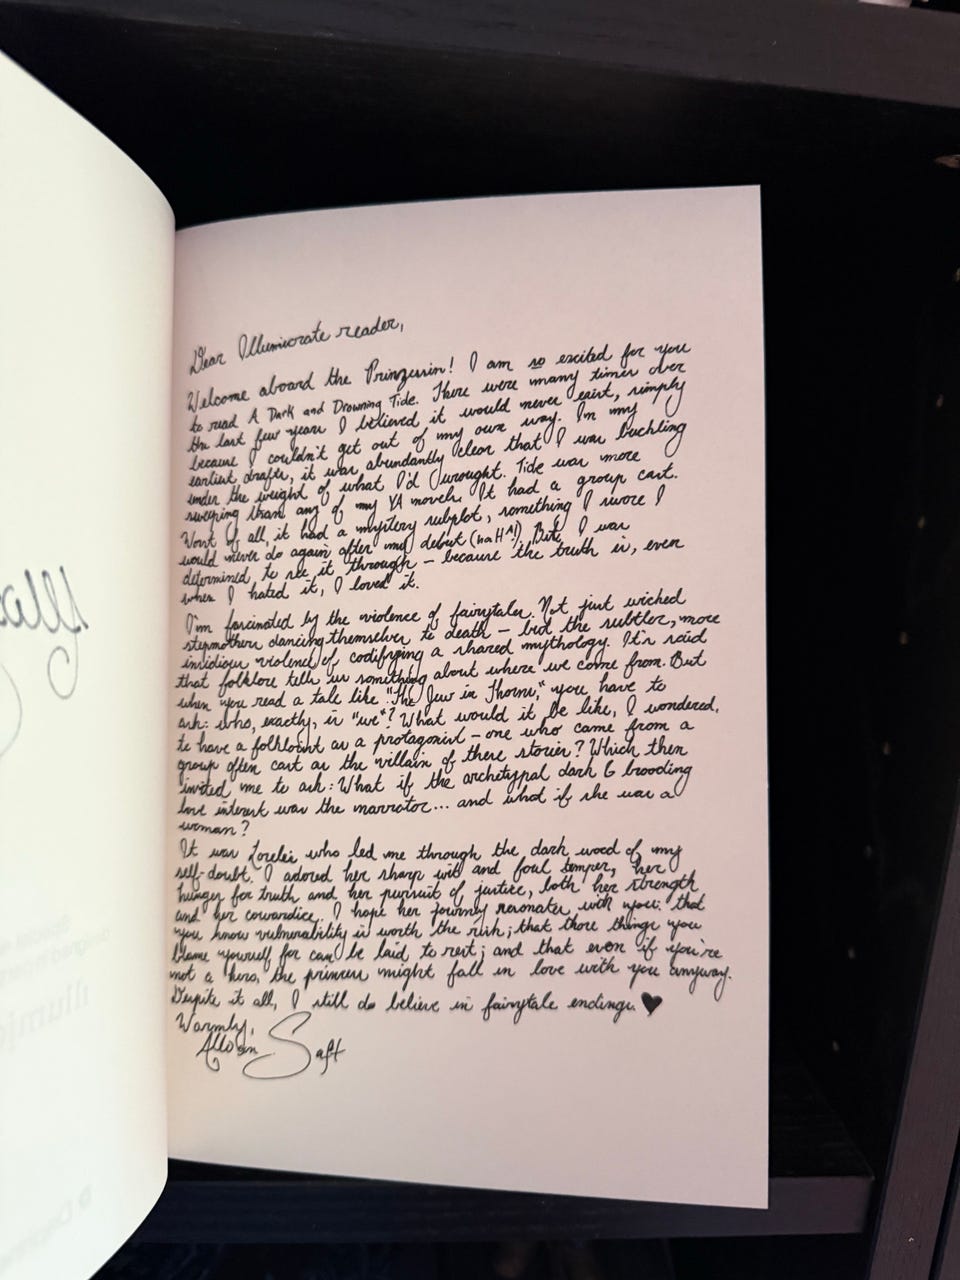 Dear Illumicrate reader,
Welcome aboard the Prinzessin! I am so excited for you
to read A Dark and Drowning Tide. There were many times over
the last few years I believed it would never exist, simply
because I couldn't get out of my own way. In my
earliest drafts, it was abundantly clear that I was buckling
under the weight of what I'd wrought. Tide was more
sweeping than any of my YA novels. It had a group cast.
Worst of all, it had a mystery subplot, something I swore I
would never do again after my debut (waH^!). But I was
determined to see it through – because the truth is, even
when I hated it, I loved it.
I'm fascinated by the violence of fairytales. Not just wicked
stepmothers dancing themselves to death – but the subtler, more
insidious violence of codifying a shared mythology. It's said
that folklore tells us something about where we come from. But
when you read a tale like "The Jew in Thorns," you have to
ask: who, exactly, is "we"? What would it be like, I wondered,
to have a folklorist as a protagonist – one who came from a
group often cast as the villain of these stories? Which then
invited me to ask: What if the archetypal dark & brooding
love interest was the narrator... and what if she was a
woman?
It was Lorelei who led me through the dark wood of my
self-doubt. I adored her sharp wit and foul temper, her
hunger for truth and her pursuit of justice, both her strength
and her cowardice. I hope her journey resonates with you: that
you know vulnerability is worth the risk; that those things you
blame yourself for can be laid to rest; and that even if you're
not a hero, the princess might fall in love with you anyway.
Despite it all, I still do believe in fairytale endings. ♥
Warmly,
Allison Saft